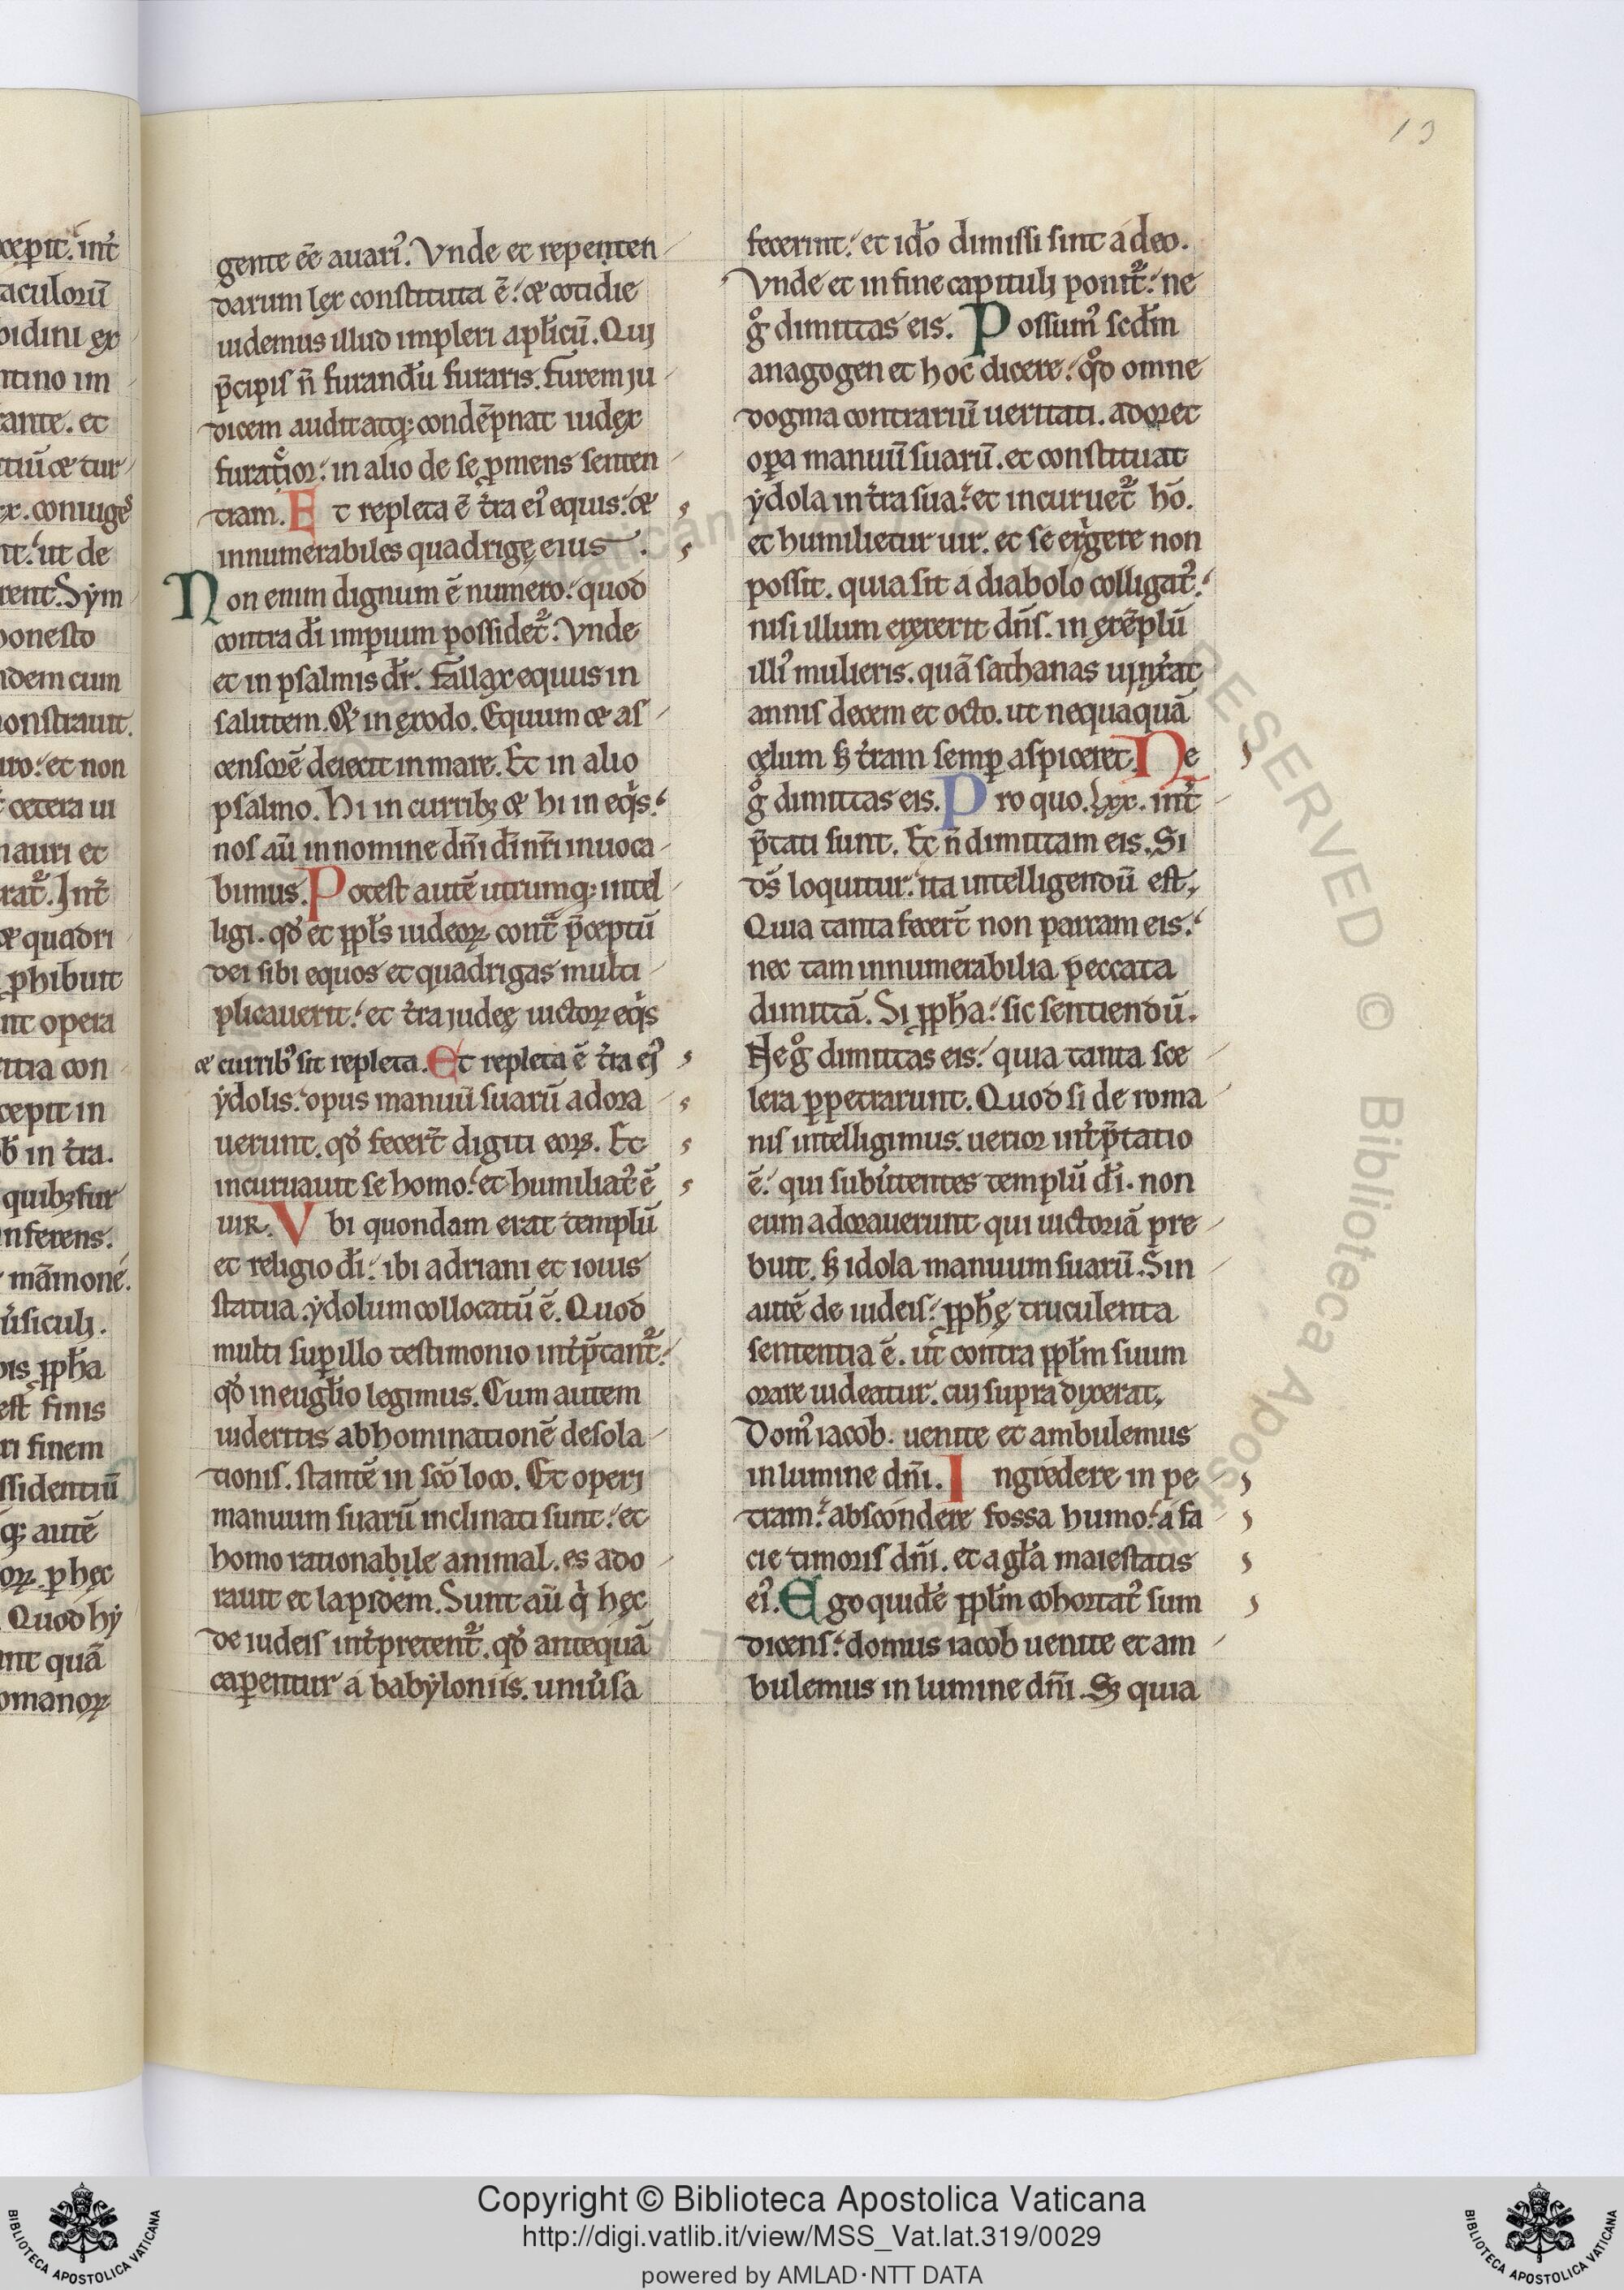 13
xcepit. int̄
aculorū
bidini ex
ntino im
tante. et
tiū & tur
ex. coniuges
nt. ut de
rent. Sým
honesto
ndem cum
monstrauit.
uro. et non
cetera ui
auri et
rat᷑. Int̄
& quadri
ꝓhibuit
nt opera
titia con
cepit in
in t̄ra.
quibꝫ fur
nferens.
mām̄one.
ūsiculis.
ꝓph̄a
est finis
ri finem
ssidentiū
qꝫ autē
oꝝ. ꝑ hęc
Quod hý
nt quā
omanoꝝ
gente ēē auari⁹. Vnde et repeten
darum lex constituta ē. & cotidie
uidemus illud impleri apl̄icū. Qui
p̄cipis n̄ furandū furaris. furem iu
dicem audit atqꝫ condēpnat iudex
furatior. in alio de se ꝓmens senten
tiam. Et repleta ē t̄ra ei⁹ equis. &
innumerabiles quadrigę eius.
Non enim dignum ē numero. quod
contra dī imperium possidet᷑. Vnde
et in psalmis dr̄. fallax equus in
salutem. Et in exodo. Equum & as
censorē deiecit in mare. Et in alio
psalmo. Hi in curribꝫ & hi in eqͥs.
nos aū in nomine dn̄i dī nr̄i inuoca
bimus. Potest autē utrumqꝫ intel
ligi. qd̄ et ppl̄s iudeoꝝ cont̄ p̄ceptū
dei sibi equos et quadrigas multi
plicauerit. et t̄ra iudeę uictoꝝ eqͥs
& currib⁹ sit repleta. Et repleta ē t̄ra ei⁹
ýdolis. opus manuū suarū adora
uerunt. qd̄ fecer̄t digiti eoꝝ. Et
incuruauit se homo. et humiliat⁹ ē
uir. Vbi quondam erat templū
et religio dī. ibi adriani et iouis
statua. ýdolum collocatū ē. Quod
multi super illo testimonio int̄p̄tant᷑.
qd̄ in eugl̄io legimus. Cum autem
uideritis abhominationē desola
tionis. stantē in sc̄o loco. Et operi
manuum suarū inclinati sunt. et
homo rationabile animal. es ado
rauit et lapidem. Sunt aū qͥ hęc
de iudeis int̄pretent᷑. qd̄ antequā
caperentur á babýloniis. uniūsa
fecerint. et id̄o dimissi sint a deo.
Vnde et in fine capituli ponit᷑. ne
gͦ dimittas eis. Possum⁹ scd̄m
anagogen et hoc dicere. qd̄ omne
dogma contrariū ueritati. adoret
opera manuū suarū. et constituat
ýdola in t̄ra sua. et incuruet᷑ hō.
et humilietur uir. et se erigere non
possit. quia sit a diabolo colligat⁹.
nisi illum erexerit dn̄s. in exēplū
illi⁹ mulieris. quā sathanas uinx̄at
annis decem et octo. ut nequaquā
cęlum sꝫ t̄ram semꝑ aspiceret. Ne
gͦ dimittas eis. Pro quo. lxx. int̄
p̄tati sunt. Et n̄ dimittam eis. Si
ds̄ loquitur. ita intelligendū est.
Quia tanta fecer̄t non parcam eis.
nec tam innumerabilia peccata
dimittā. Si ꝓph̄a. sic sentiendū.
Ne gͦ dimittas eis. quia tanta sce
lera ꝑpetrarunt. Quod si de roma
nis intelligimus. uerior int̄p̄tatio
ē. qui subūtentes templū dī. non
eum adorauerunt qui uictoriā pre
buit. sꝫ idola manuum suarū. Sin
autē de iudeis. ꝓph̄ę truculenta
sententia ē. ut contra ppl̄m suum
orare uideatur. cui supra dixerat.
Dom⁹ iacob. uenite et ambulemus
in lumine dn̄i. Ingredere in pe
tram. abscóndere fossa humo. á fa
cie timoris dn̄i. et a gl̄a maiestatis
ei⁹. Ego quidē ppl̄m cohortat⁹ sum
dicens. domus iacob uenite et am
bulemus in lumine dn̄i. Sꝫ quia
RESERVED © Biblioteca Apost
Copyright © Biblioteca Apostolica Vaticana
http://digi.vatlib.it/view/MSS_Vat.lat.319/0029
powered by AMLAD·NTT DATA
BIBLIOTECA APOSTOLICA VATICANA
BIBLIOTECA APOSTOLICA VATICANA